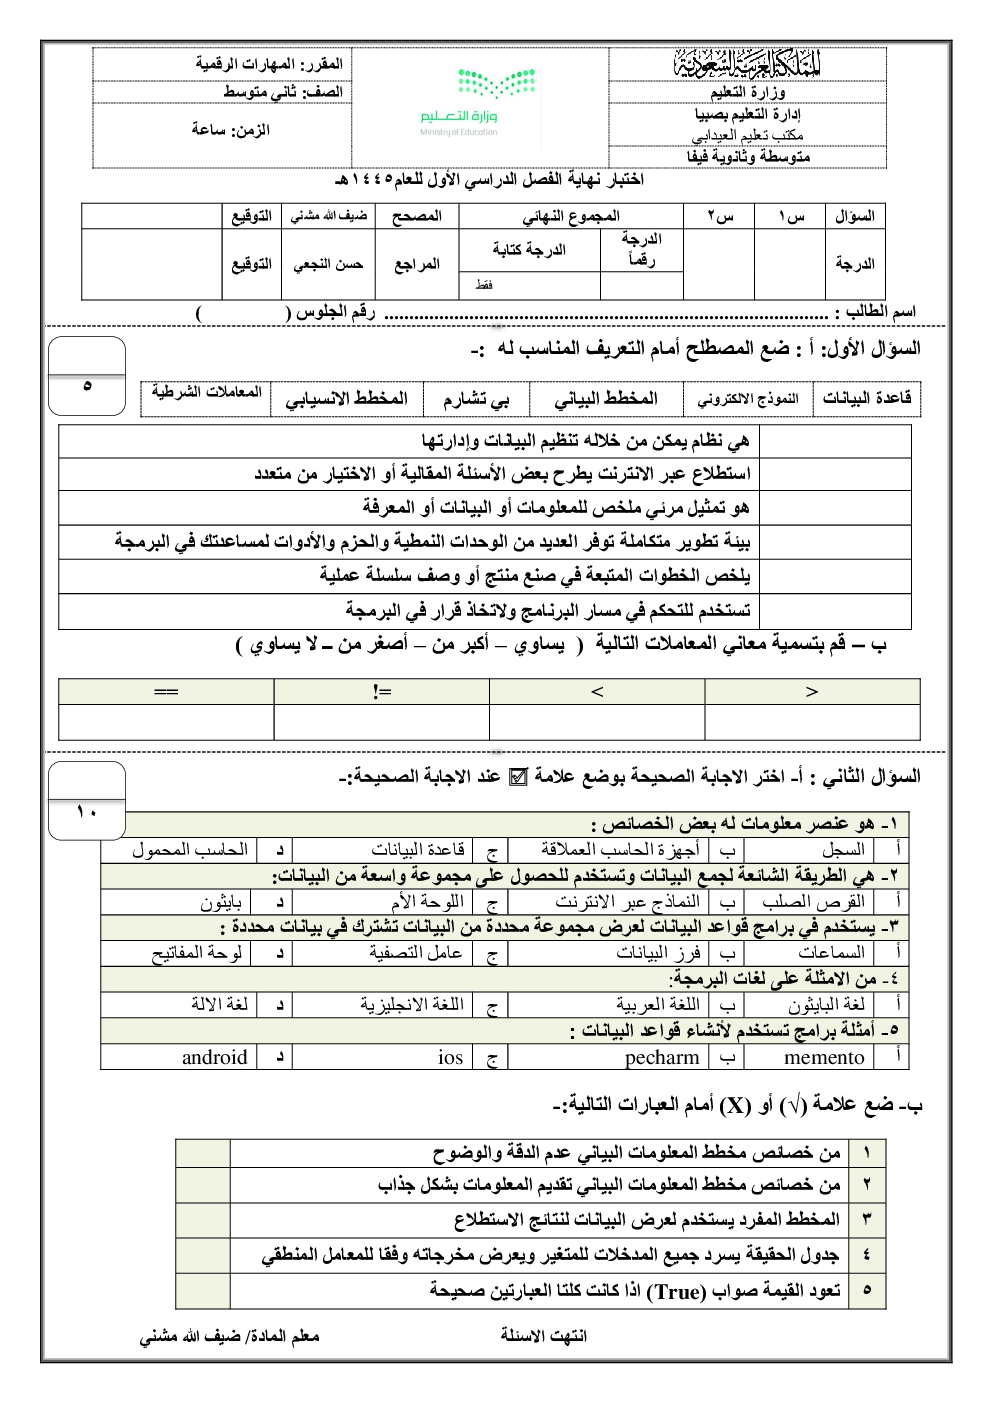 المملكة العربية السعودية
وزارة التعليم
إدارة التعليم بصبيا
مكتب تعليم العيدابي
متوسطة وثانوية فيفا
وزارة التعليم
Ministry of Education
المقرر: المهارات الرقمية
الصف: ثاني متوسط
الزمن: ساعة
اختبار نهاية الفصل الدراسي الأول للعام١٤٤٥هـ
السؤال س١ س٢ المجموع النهائي المصحح ضيف الله مشني التوقيع
الدرجة الدرجة رقماً الدرجة كتابة المراجع حسن النجعي التوقيع
فقط
اسم الطالب : ........................................................................................ رقم الجلوس ( )
السؤال الأول: أ : ضع المصطلح أمام التعريف المناسب له :-
٥
قاعدة البيانات النموذج الالكتروني المخطط البياني بي تشارم المخطط الانسيابي المعاملات الشرطية
هي نظام يمكن من خلاله تنظيم البيانات وإدارتها
استطلاع عبر الانترنت يطرح بعض الأسئلة المقالية أو الاختيار من متعدد
هو تمثيل مرئي ملخص للمعلومات أو البيانات أو المعرفة
بيئة تطوير متكاملة توفر العديد من الوحدات النمطية والحزم والأدوات لمساعدتك في البرمجة
يلخص الخطوات المتبعة في صنع منتج أو وصف سلسلة عملية
تستخدم للتحكم في مسار البرنامج ولاتخاذ قرار في البرمجة
ب – قم بتسمية معاني المعاملات التالية ( يساوي – أكبر من – أصغر من – لا يساوي )
> < != ==
السؤال الثاني : أ- اختر الاجابة الصحيحة بوضع علامة ☑ عند الاجابة الصحيحة:-
١٠
١- هو عنصر معلومات له بعض الخصائص :
أ السجل ب أجهزة الحاسب العملاقة ج قاعدة البيانات د الحاسب المحمول
٢- هي الطريقة الشائعة لجمع البيانات وتستخدم للحصول على مجموعة واسعة من البيانات:
أ القرص الصلب ب النماذج عبر الانترنت ج اللوحة الأم د بايثون
٣- يستخدم في برامج قواعد البيانات لعرض مجموعة محددة من البيانات تشترك في بيانات محددة :
أ السماعات ب فرز البيانات ج عامل التصفية د لوحة المفاتيح
٤- من الامثلة على لغات البرمجة:
أ لغة البايثون ب اللغة العربية ج اللغة الانجليزية د لغة الالة
٥- أمثلة برامج تستخدم لأنشاء قواعد البيانات :
أ memento ب pecharm ج ios د android
ب- ضع علامة (√) أو (X) أمام العبارات التالية:-
١ من خصائص مخطط المعلومات البياني عدم الدقة والوضوح
٢ من خصائص مخطط المعلومات البياني تقديم المعلومات بشكل جذاب
٣ المخطط المفرد يستخدم لعرض البيانات لنتائج الاستطلاع
٤ جدول الحقيقة يسرد جميع المدخلات للمتغير ويعرض مخرجاته وفقا للمعامل المنطقي
٥ تعود القيمة صواب (True) اذا كانت كلتا العبارتين صحيحة
انتهت الاسئلة معلم المادة/ ضيف الله مشني